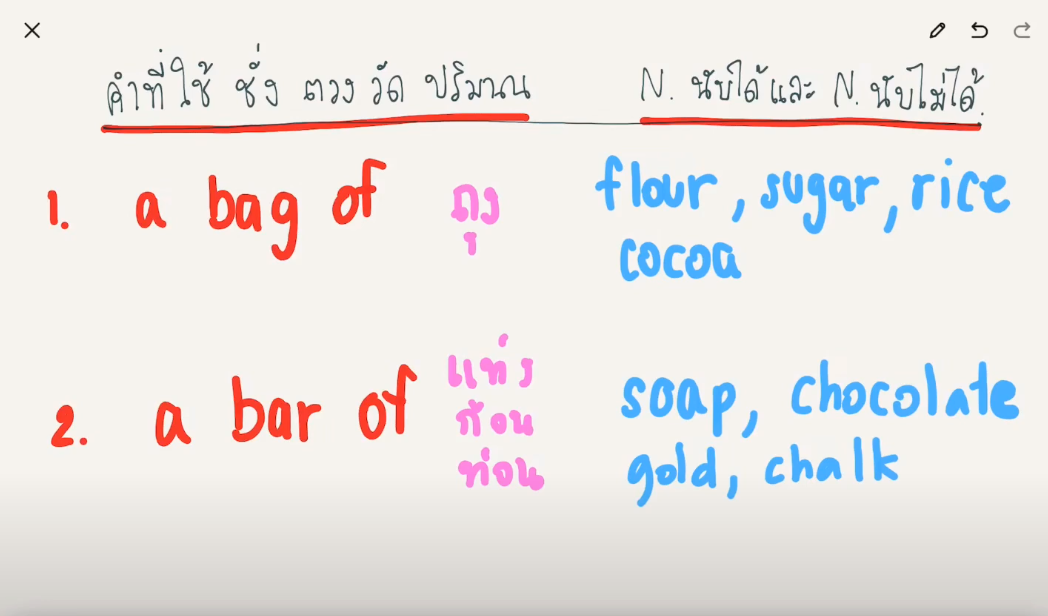 คำที่ใช้ ชั่ง ตวง วัด ปริมาณ N. นับได้ และ N. นับไม่ได้.
1. a bag of ถุง flour, sugar, rice
cocoa
2. a bar of แท่ง soap, chocolate
ก้อน gold, chalk
ท่อน